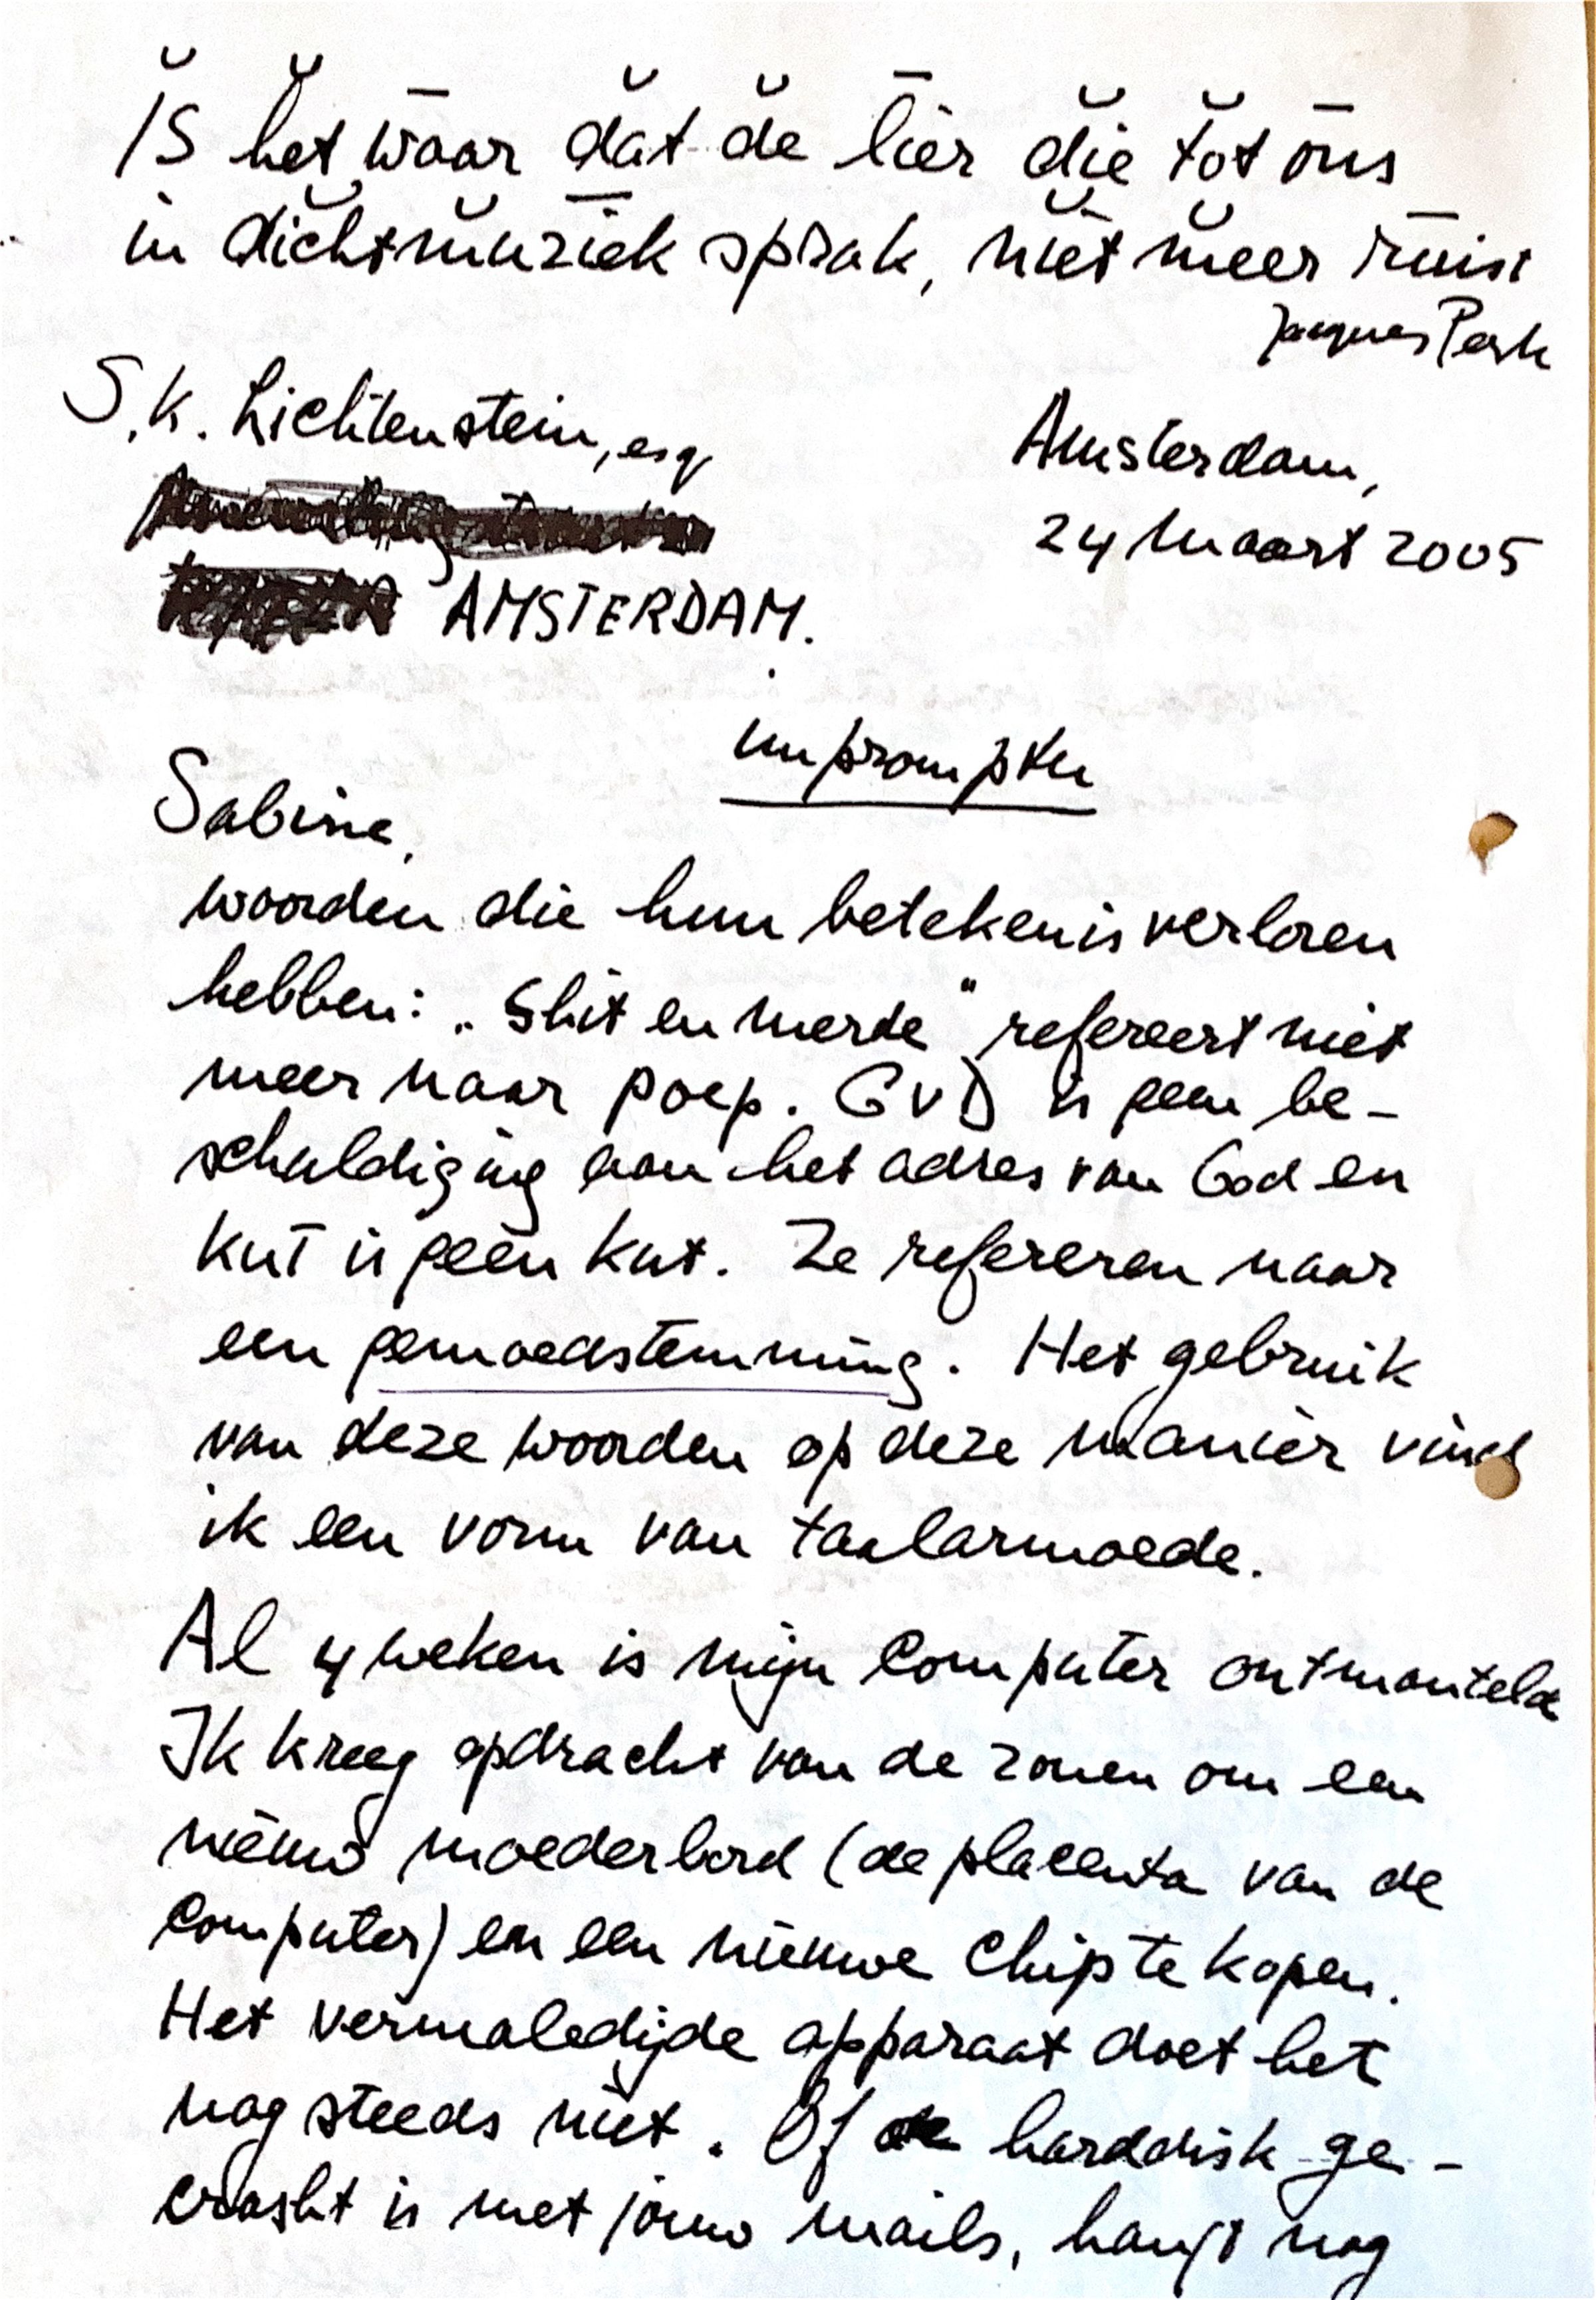 Is het waar dat de lier die tot ons
in dichtmuziek sprak, niet meer ruist
Jacques Perk
S.K. Lichtenstein, esq
Amsterdam,
24 Maart 2005
AMSTERDAM.
impromptu
Sabine,
woorden die hun betekenis verloren
hebben: „Shit en merde" refereert niet
meer naar poep. GVD is geen be-
schuldiging aan het adres van God en
kut is geen kut. Ze refereren naar
een gemoedstemming. Het gebruik
van deze woorden op deze manier vind
ik een vorm van taalarmoede.
Al 4 weken is mijn Computer ontmanteld
Ik kreeg opdracht van de zonen om een
nieuw moederbord (de placenta van de
Computer) en een nieuwe Chip te kopen.
Het vermaledijde apparaat doet het
nog steeds niet. Of de harddisk ge-
crasht is met jouw mails, hangt nog